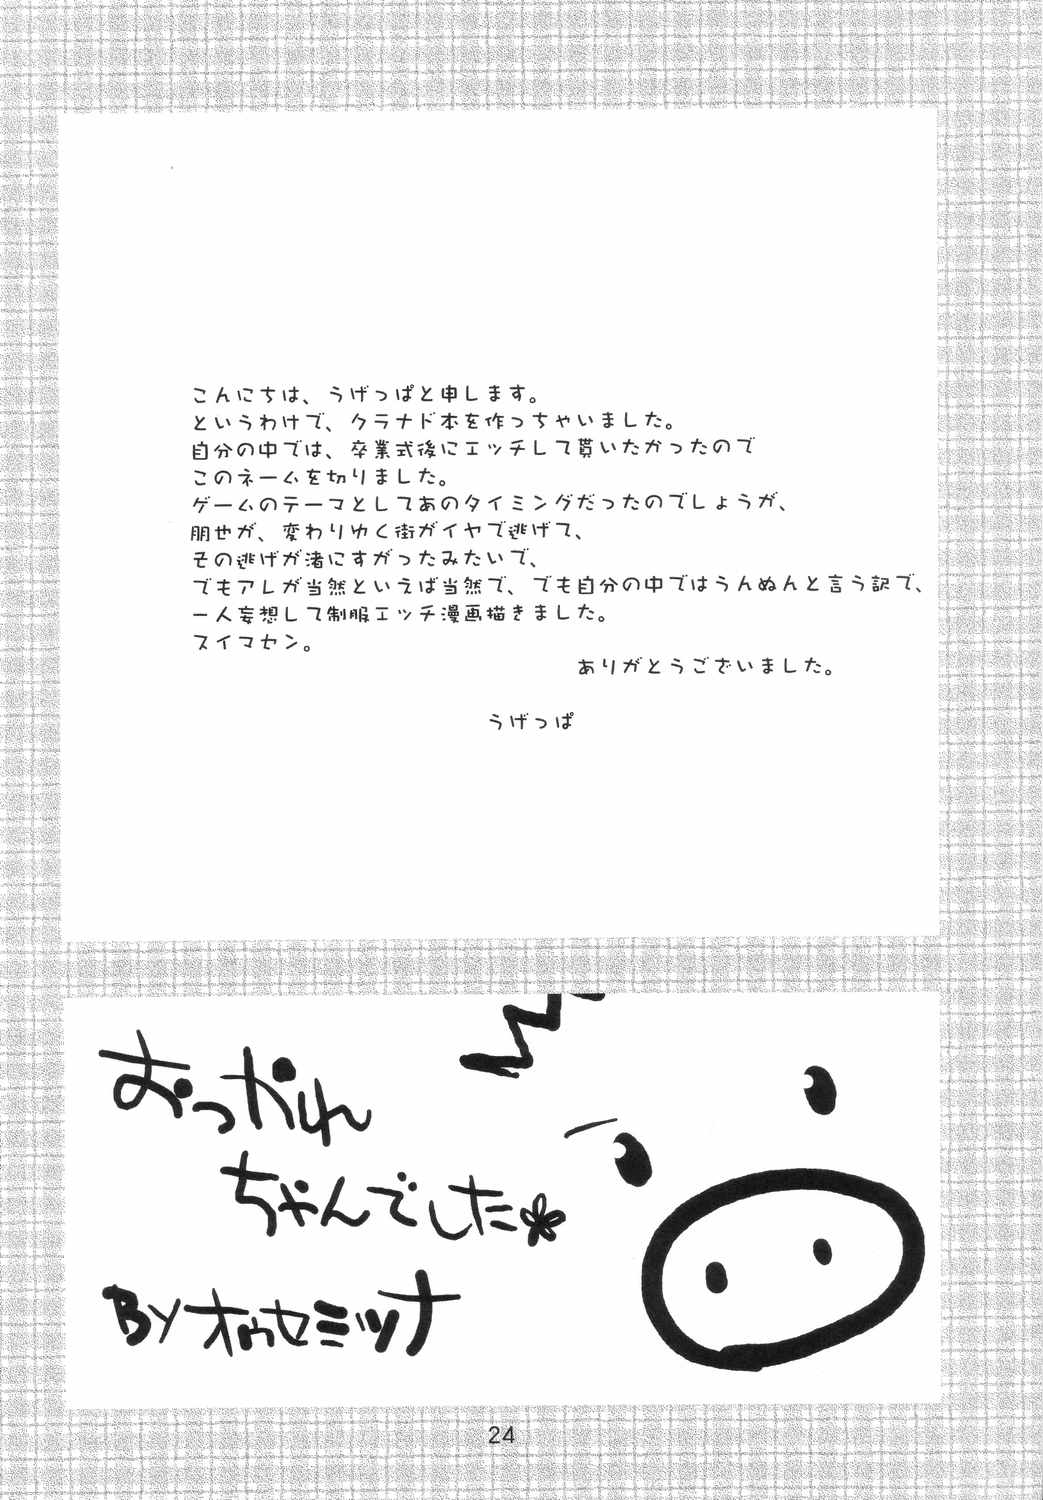 こんにちは、うげっぱと申します。
というわけで、クラナド本を作っちゃいました。
自分の中では、卒業式後にエッチして貰いたかったので
このネームを切りました。
ゲームのテーマとしてあのタイミングだったのでしょうが、
朋也が、変わりゆく街がイヤで逃げて、
その逃げが渚にすがったみたいで、
でもアレが当然といえば当然で、でも自分の中ではうんぬんと言う訳で、
一人妄想して制服エッチ漫画描きました。
スイマセン。
ありがとうございました。
うげっぱ
おつかれ
ちゃんでした
BY オウセミツナ
24